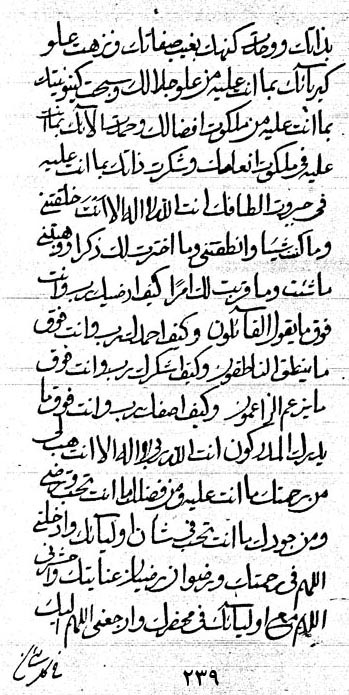 بذاتك ووحدت كنهك بغيب صفاتك ونزهت علو
كبريائك بما انت عليه من علو جلالك وسبحت كينونيتك
بما انت عليه من ملكوت افضالك وحمدت الائك بما انت
عليه في ملكوت انعامك وشكرت ذاتك بما انت عليه
في جبروت الطافك انت الله لا اله الا انت خلقتني
وما كنت شيئا وانطقتني وما اخترت لك ذكرا ووهبتني
ما شئت وما قربت لك امرا كيف ارضيك رب وانت
فوق ما يقول القائلون وكيف احمدك رب وانت فوق
ما ينطق الناطقون وكيف اشكرك رب وانت فوق
ما يزعم الزاعمون وكيف اصفك رب وانت فوق ما
يدرك المدركون انت الله ربي لا اله الا انت هب لي
من رحمتك ما انت عليه ومن فضلك ما انت تحب وترضى
ومن جودك ما انت تحب في شان اوليائك وادخلني
اللهم في رحمتك ورضوان برضيك من عنايتك واحشرني
اللهم مع اوليائك في محضرك وارجعني اللهم اليك
٢٣٩